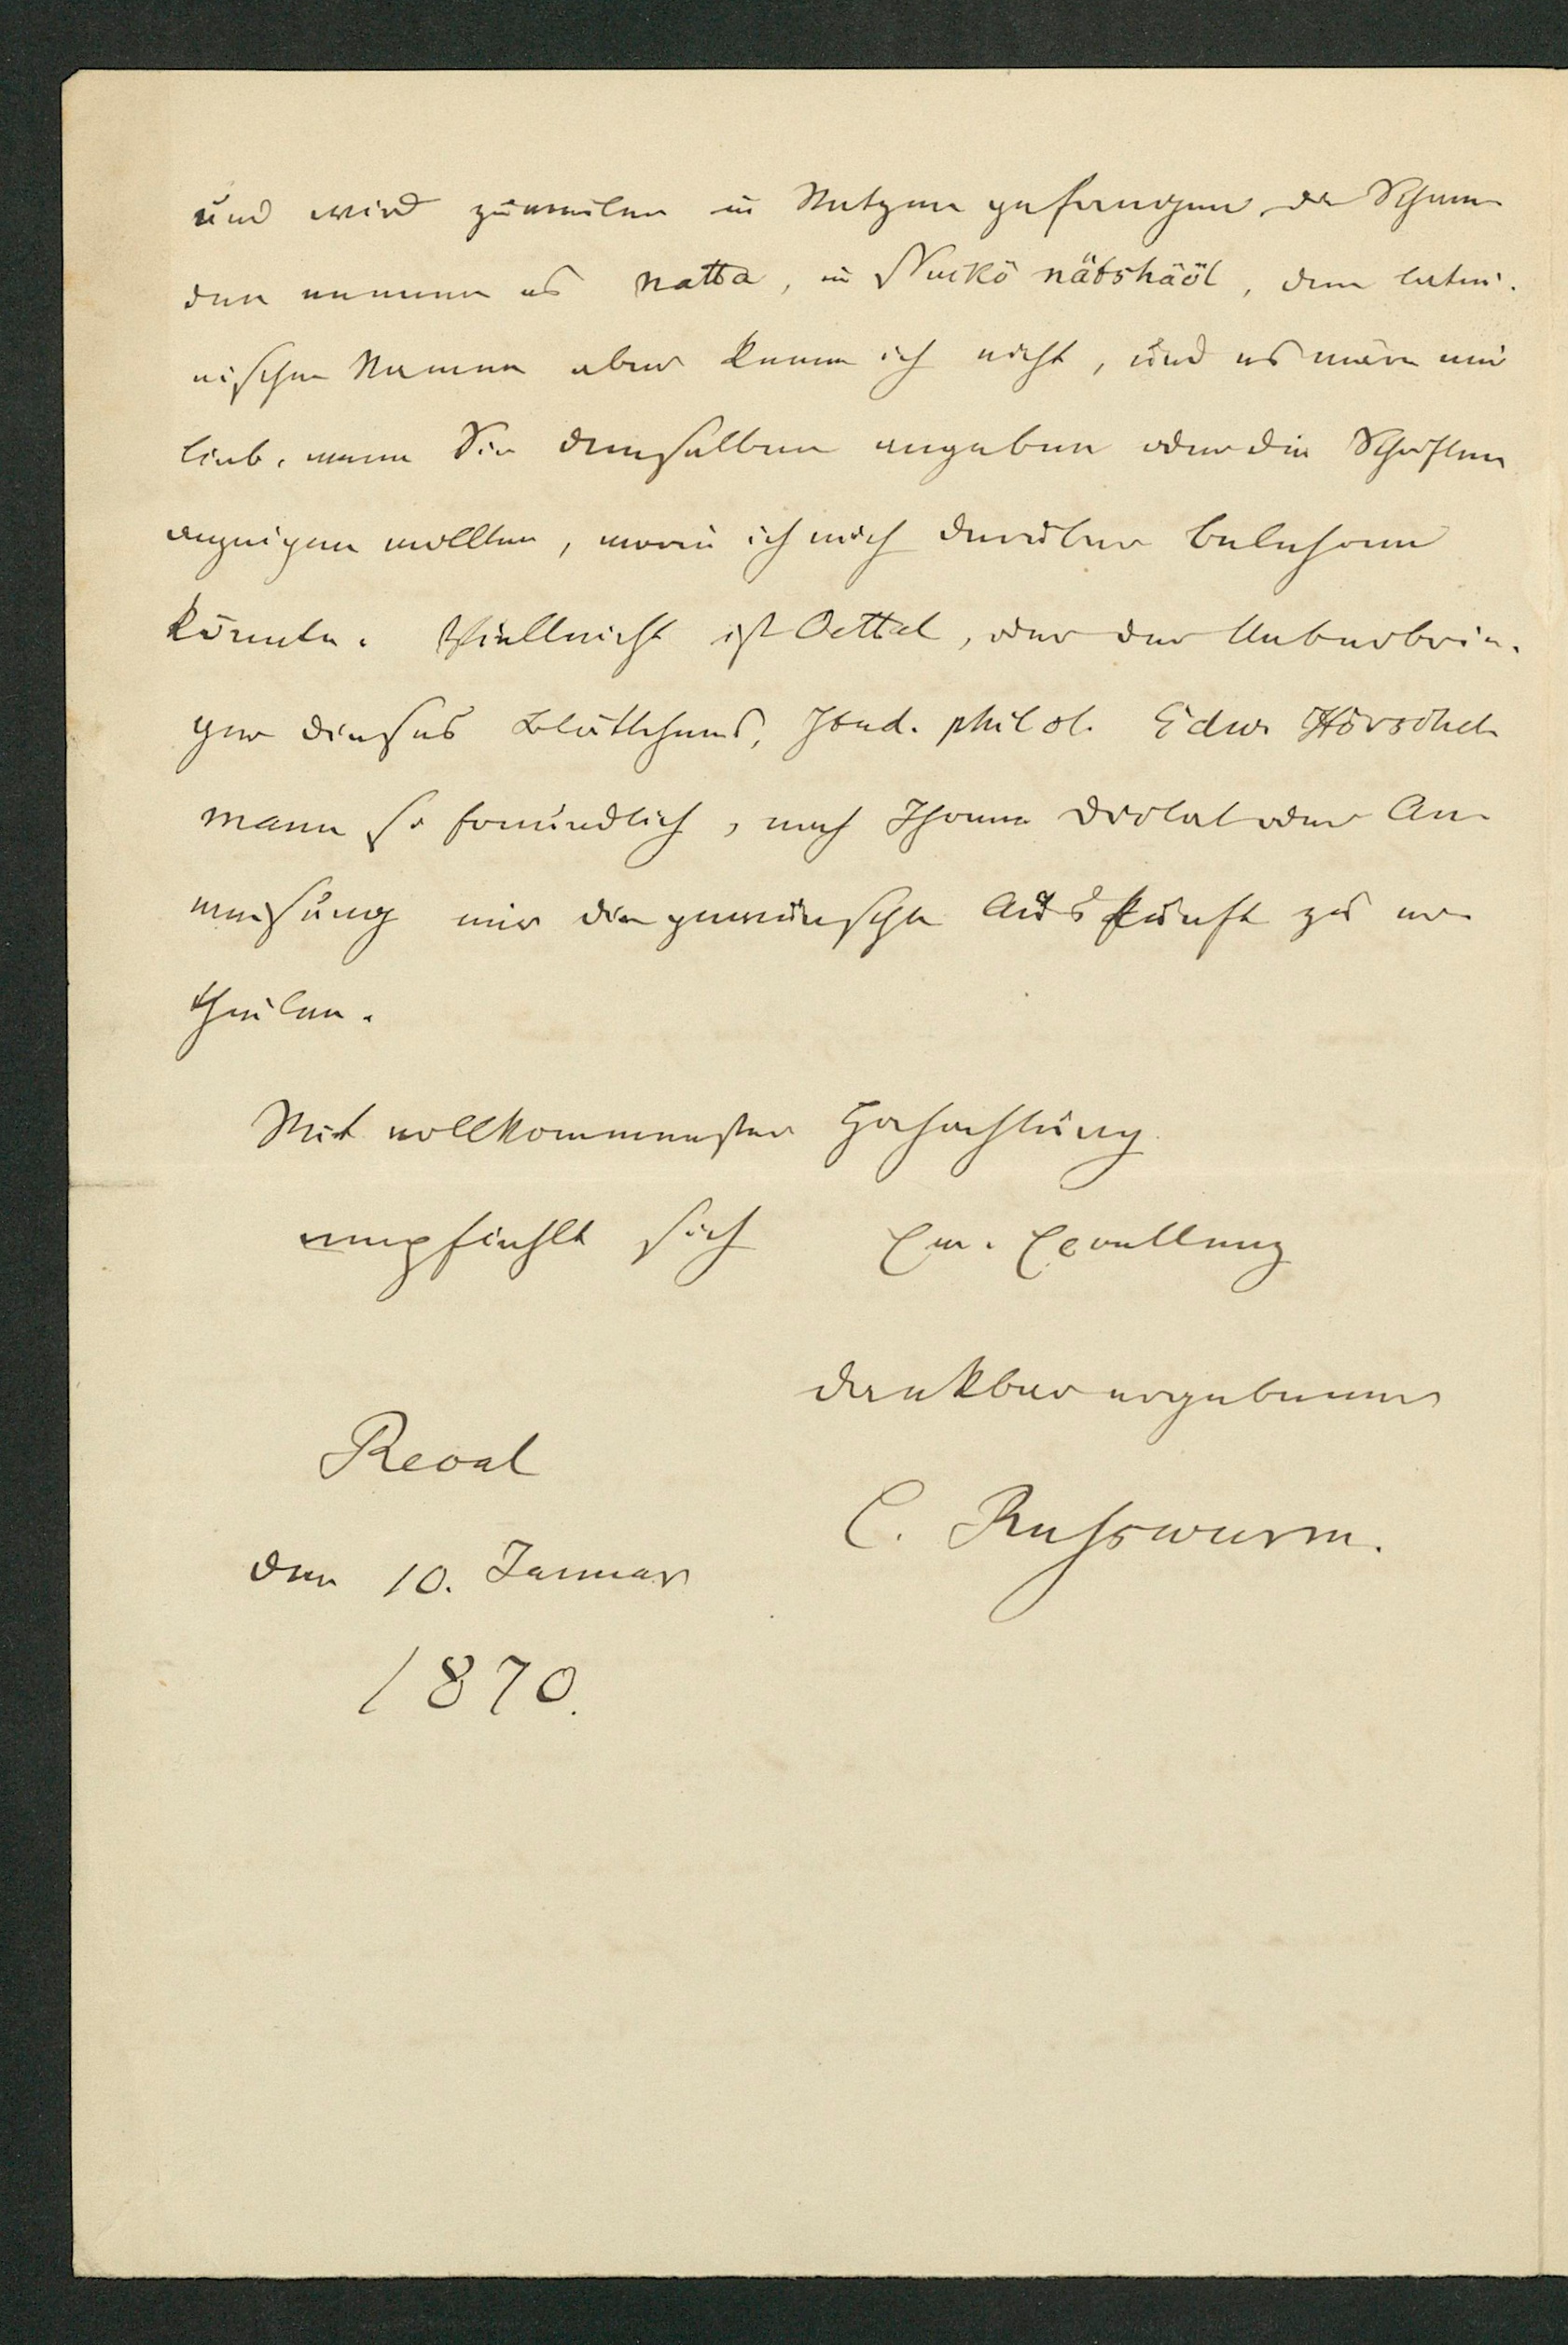 und wird zuweilen in Netzen gefangen, die Schwe-
den nennen es natta, in Nuckö nätshäöl, den latei-
nischen Namen aber kenne ich nicht, und es wäre mir
lieb, wenn Sie denselben angeben oder die Schriften
anzeigen wollten, worin ich mich darüber belehren
könnte. Vielleicht ist Oettel, oder der Ueberbrin-
ger dieses Blättchens, Stud. philol. Edw. Hörschel-
mann so freundlich, nach Ihrem Dictat oder An-
weisung mir die gewünschte Auskunft zu er-
theilen.
Mit vollkommenster Hochachtung
empfiehlt sich Ew. Excellenz
dankbar ergebener
Reval
C. Rußwurm.
den 10. Januar
1870.